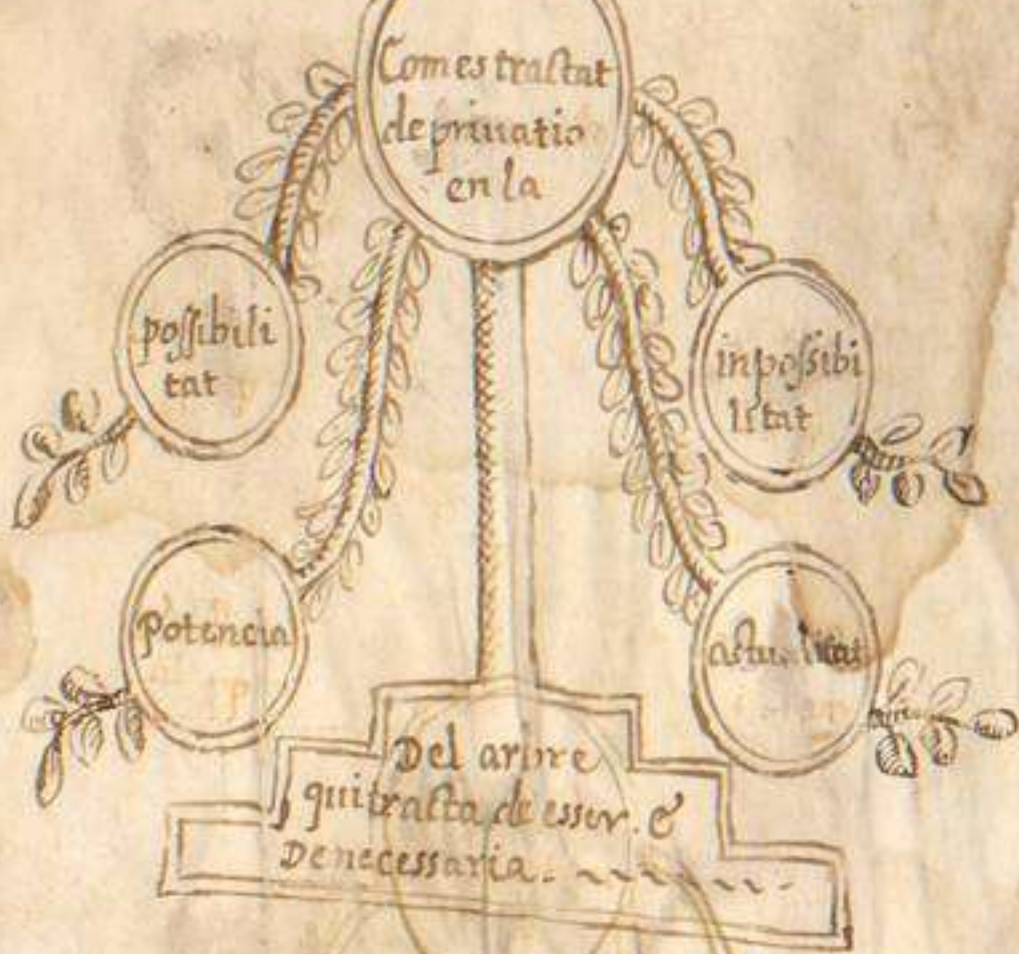 Com es tractat
de privatio
en la
possibili
tat
inpossibi
litat
potencia
actualitat
Del arbre
qui tracta de esser. &
De necessaria.